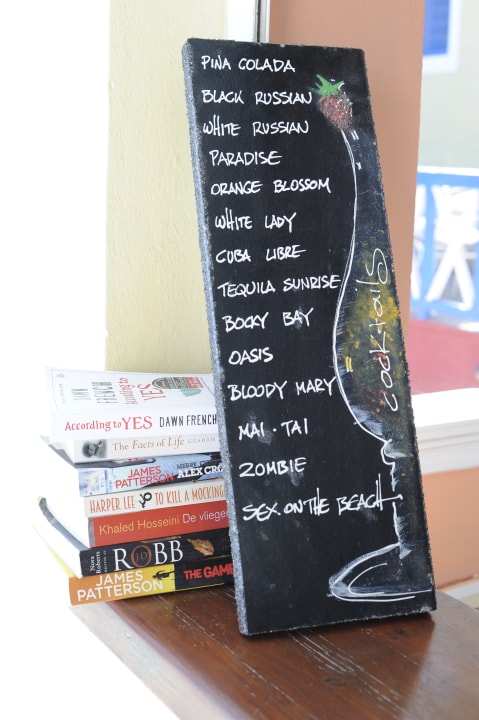 PINA COLADA
BLACK RUSSIAN
WHITE RUSSIAN
PARADISE
ORANGE BLOSSOM
WHITE LADY
CUBA LIBRE
TEQUILA SUNRISE
BOCKY BAY
OASIS
BLOODY MARY
MAI·TAI
ZOMBIE
SEX ON THE BEACH
cocktails
DAWN FRENCH According to YES
According to YES DAWN FRENCH
The Facts of Life GRAHAM
JAMES PATTERSON ALEX CRO
HARPER LEE TO KILL A MOCKING
Khaled Hosseini De vlieger
Nora Roberts JD ROBB
JAMES PATTERSON THE GAM